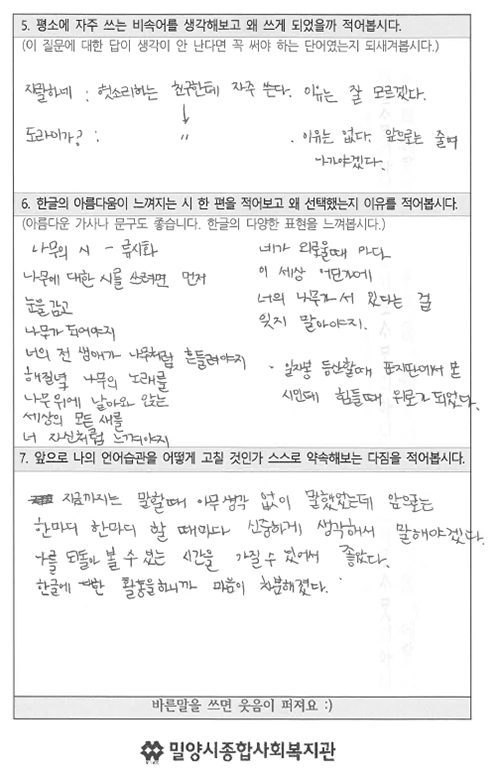 5. 평소에 자주 쓰는 비속어를 생각해보고 왜 쓰게 되었을까 적어봅시다.
(이 질문에 대한 답이 생각이 안 난다면 꼭 써야 하는 단어였는지 되새겨봅시다.)
지랄하네 : 헛소리하는 친구한테 자주 쓴다. 이유는 잘 모르겠다.
도라이가? : 〃 . 이유는 없다. 앞으로는 줄여
나가야겠다.
6. 한글의 아름다움이 느껴지는 시 한 편을 적어보고 왜 선택했는지 이유를 적어봅시다.
(아름다운 가사나 문구도 좋습니다. 한글의 다양한 표현을 느껴봅시다.)
나무의 시 - 류시화
나무에 대한 시를 쓰려면 먼저
눈을 감고
나무가 되어야지
너의 전 생애가 나무처럼 흔들려야지
해질녘 나무의 노래를
나무 위에 날아와 앉는
세상의 모든 새를
너 자신처럼 느껴야지
네가 외로울때 마다
이 세상 어딘가에
너의 나무가 서 있다는 걸
잊지 말아야지.
· 일자봉 등산할때 표지판에서 본
시인데 힘들때 위로가 되었다.
7. 앞으로 나의 언어습관을 어떻게 고칠 것인가 스스로 약속해보는 다짐을 적어봅시다.
지금까지는 말할때 아무생각 없이 말했었는데 앞으로는
한마디 한마디 할 때마다 신중하게 생각해서 말해야겠다.
나를 되돌아 볼 수 있는 시간을 가질 수 있어서 좋았다.
한글에 대한 활동을하니까 마음이 차분해졌다.
바른말을 쓰면 웃음이 퍼져요 :)
밀양시종합사회복지관